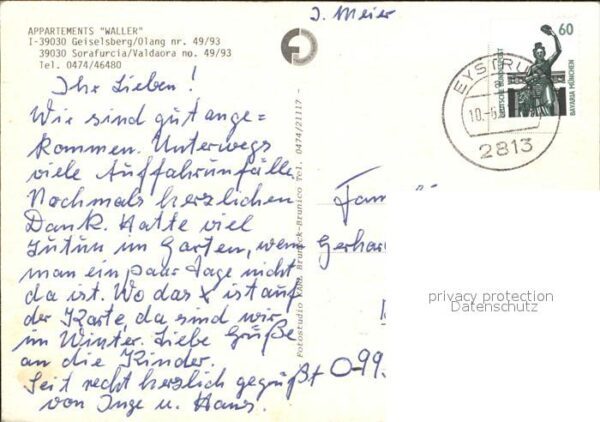 APPARTEMENTS "WALLER"
I-39030 Geiselsberg/Olang nr. 49/93
39030 Sorafurcia/Valdaora no. 49/93
Tel. 0474/46480
J. Meier
Ihr Lieben!
Wir sind gut ange=
kommen. Unterwegs
viele Auffahrunfälle
Nochmals herzlichen
Dank. Hatte viel
zutun im Garten, wenn
man ein paar Tage nicht
da ist. Wo das x ist auf
der Karte, da sind wir
im Winter. Liebe Grüße
an die Kinder.
Seit recht herzlich gegrüßt
von Inge u. Hans.
Fotostudio KARL Bruneck-Brunico Tel. 0474/21117-
60
DEUTSCHE BUNDESPOST
BAVARIA MÜNCHEN
EYSTRU
10.-6
2813
Fam
Gerhar
O-99.
privacy protection
Datenschutz